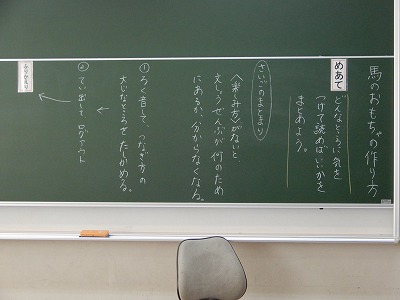 馬のおもちゃの作り方
めあて
どんなところに気を
つけて読めばいいかを
まとめよう。
さいごのまとまり
〈楽しみ方〉がないと、
文しょうぜんぶが何のため
にあるか、分からなくなる。
① ろく音して、つなぎ方の
大じなところをたしかめる。
② てい出して、ログアウト
ふりかえり